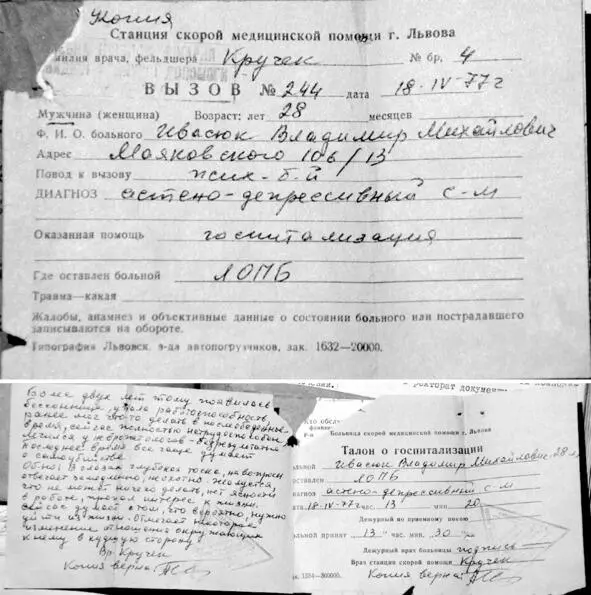 Копия
Станция скорой медицинской помощи г. Львова
милия врача, фельдшера Кручек № бр. 4
ВЫЗОВ № 244 дата 18·IV-77г
Мужчина (женщина) Возраст: лет 28 месяцев
Ф. И. О. больного Ивасюк Владимир Михайлович
Адрес Маяковского 106/13
Повод к вызову псих-б-й
ДИАГНОЗ астено-депрессивный с-м
Оказанная помощь госпитализация
Где оставлен больной ЛОПБ
Травма—какая
Жалобы, анамнез и объективные данные о состоянии больного или пострадавшего
записываются на обороте.
Типография Львовск. з-да автопогрузчиков, зак. 1632—20000.
Более двух лет тому появилась
бессонница, упала работоспособность,
ранее мог что-то делать в послеобеденное
время, сейчас полностью нетрудоспособен
лечился у невропатологов - безрезультатно
последнее время все чаще думает
о самоубийстве.
Обно: В глазах глубокая тоска, на вопросы
отвечает замедленно, неохотно. Жалуется,
что не может ничего делать, нет ясности
в работе, пропал интерес к жизни.
сейчас думает о том, что вероятно, нужно
уйти из жизни. Отмечает некоторое
изменение отношения окружающих
к нему в худшую сторону
Вр. Кручек
Копия верна:
ректорат докумен
Кто обсл
Больница скорой медицинской помощи г. Львова
Талон о госпитализации
льной Ивасюк Владимир Михайлович 28 л
оставлен ЛОПБ
иагноз астено-депрессивный с-м
та 18-IV-77г час. 13 мин. 20
Дежурный по приемному покою
льной принят 13 час. мин. 30
Дежурный врач больницы подпись
Врач станции скорой помощи Кручек
зак. 1534—300000. Копия верна: